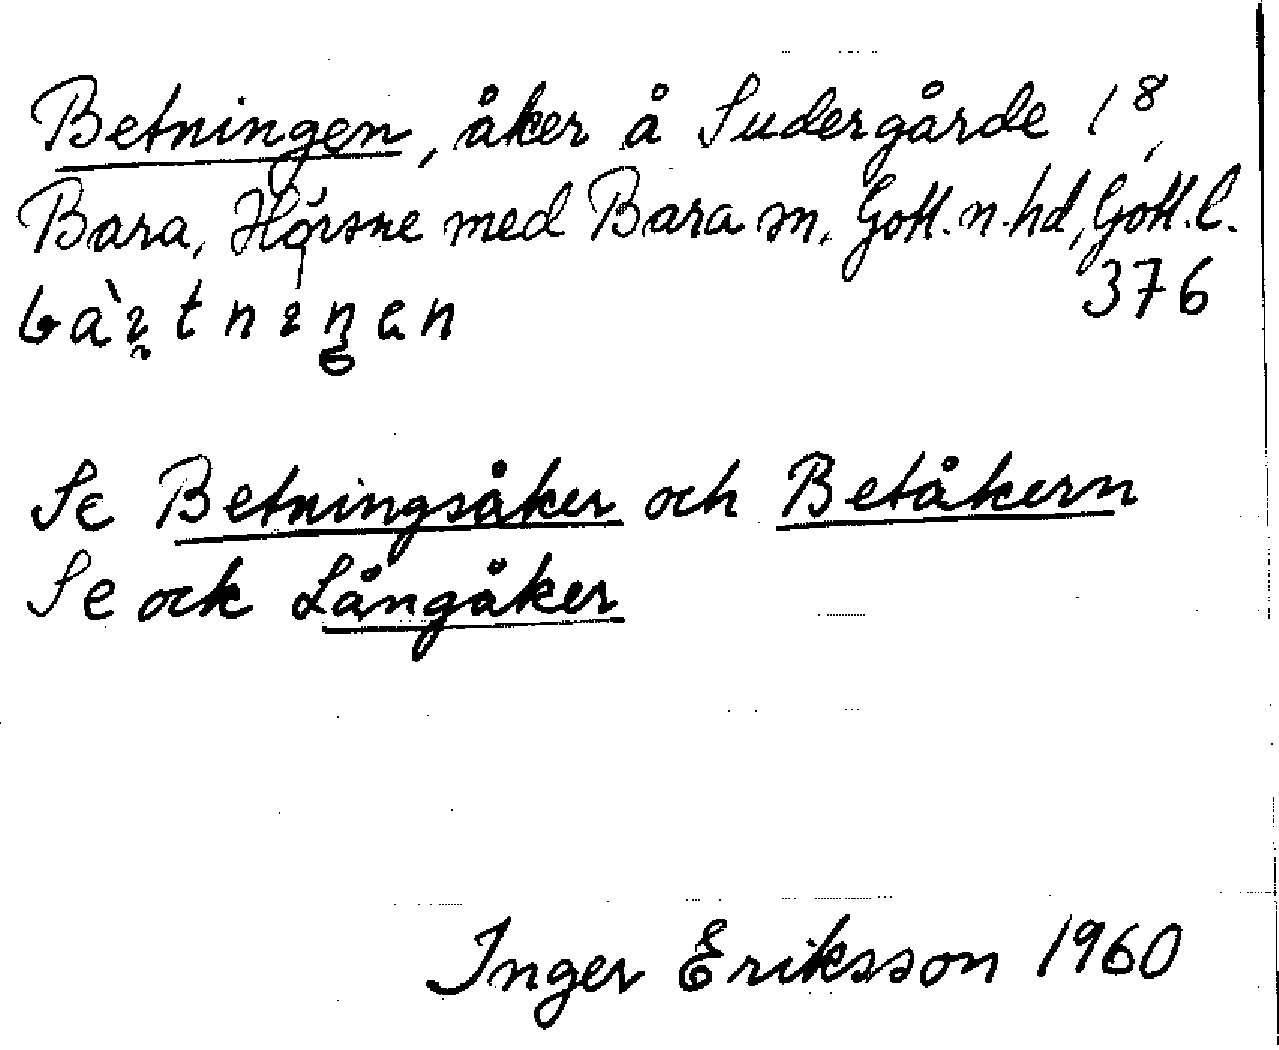 Betningen, åker å Sudergårde 1⁸,
Bara, Hörsne med Bara sn, Gotl. n. hd, Gotl. l.
376
Se Betningsåker och Betåkern
Se ock Långåker
Inger Eriksson 1960